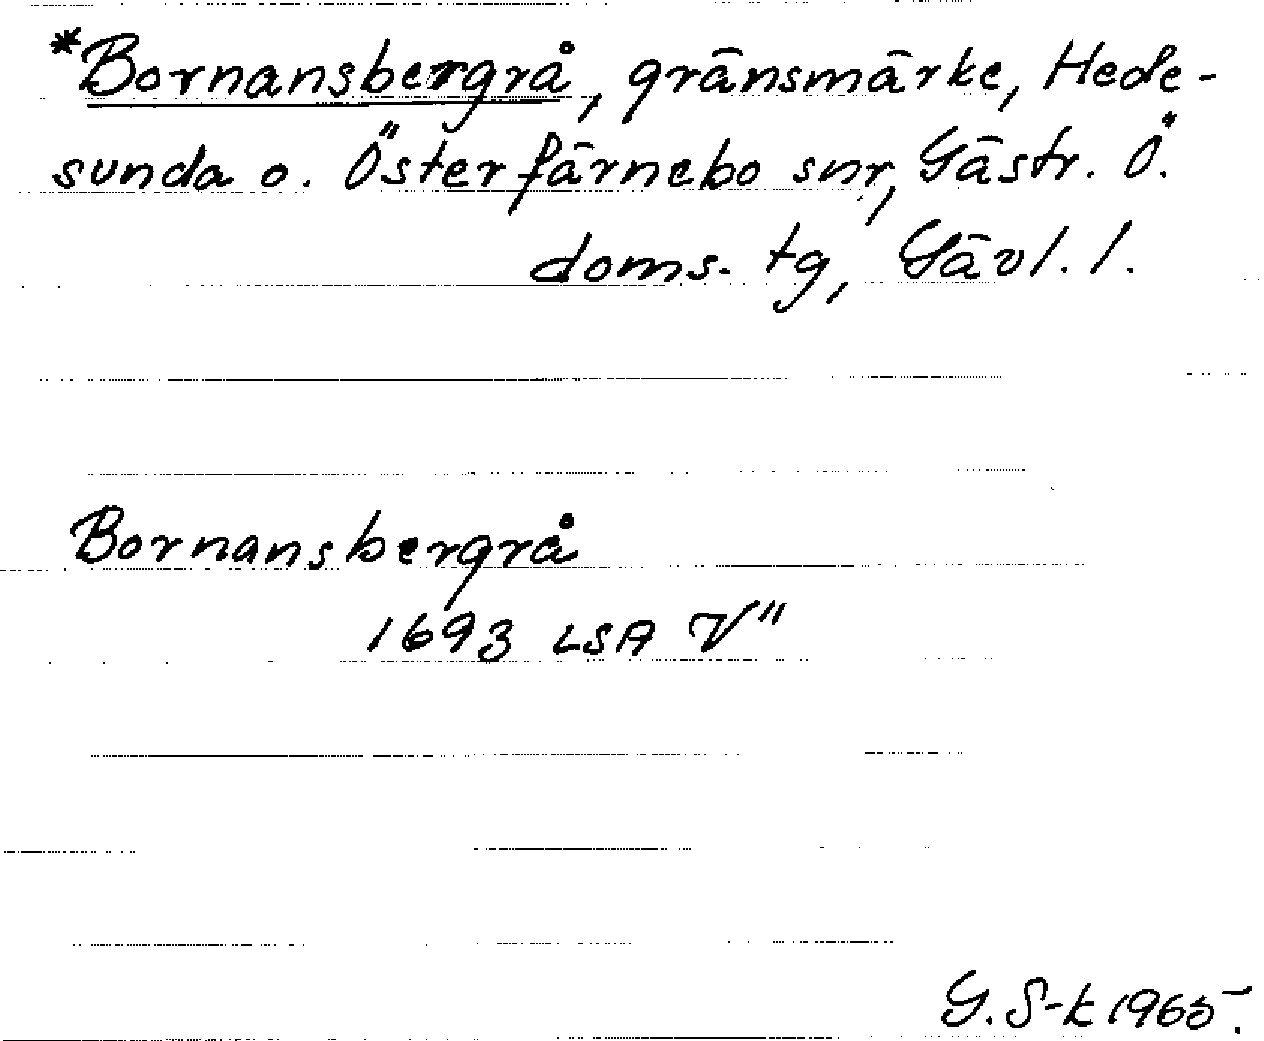 *Bornansbergrå, gränsmärke, Hede-
sunda o. Österfärnebo snr, Gästr. Ö.
doms. tg, Gävl. l.
Bornansbergrå
1693 LSA V"
G. S-k 1965.